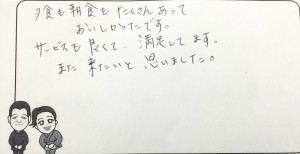 夕食も朝食もたくさんあって
おいしかったです。
サービスも良くて、満足してます。
また来たいと思いました。